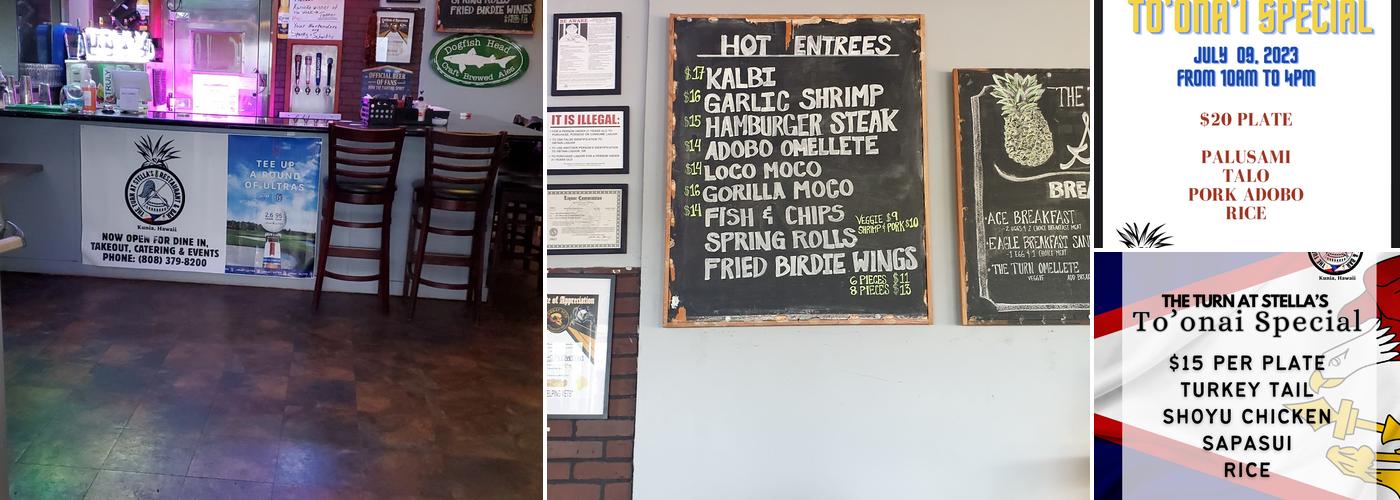 FRIED BIRDIE WINGS
Dogfish Head
Craft Brewed Ales
OFFICIAL BEER
OF FANS
TRULY
THE TURN AT STELLA'S RESTAURANT & BAR
Kunia, Hawaii
NOW OPEN FOR DINE IN,
TAKEOUT, CATERING & EVENTS
PHONE: (808) 379-8200
TEE UP
A ROUND
OF ULTRAS
2.6 95
BE AWARE
IT IS ILLEGAL:
Liquor Commission
te of Appreciation
HOT ENTREES
$17 KALBI
$16 GARLIC SHRIMP
$15 HAMBURGER STEAK
$14 ADOBO OMELLETE
$14 LOCO MOCO
$16 GORILLA MOCO
$14 FISH & CHIPS
SPRING ROLLS
VEGGIE $9
SHRIMP & PORK $10
FRIED BIRDIE WINGS
6 PIECES $11
8 PIECES $15
THE
BREA
·ACE BREAKFAST
·EAGLE BREAKFAST SAN
·THE TURN OMELLETE
VEGGIE
TO'ONA'I SPECIAL
JULY 09, 2023
FROM 10AM TO 4PM
$20 PLATE
PALUSAMI
TALO
PORK ADOBO
RICE
Kunia, Hawaii
THE TURN AT STELLA'S
To'onai Special
$15 PER PLATE
TURKEY TAIL
SHOYU CHICKEN
SAPASUI
RICE